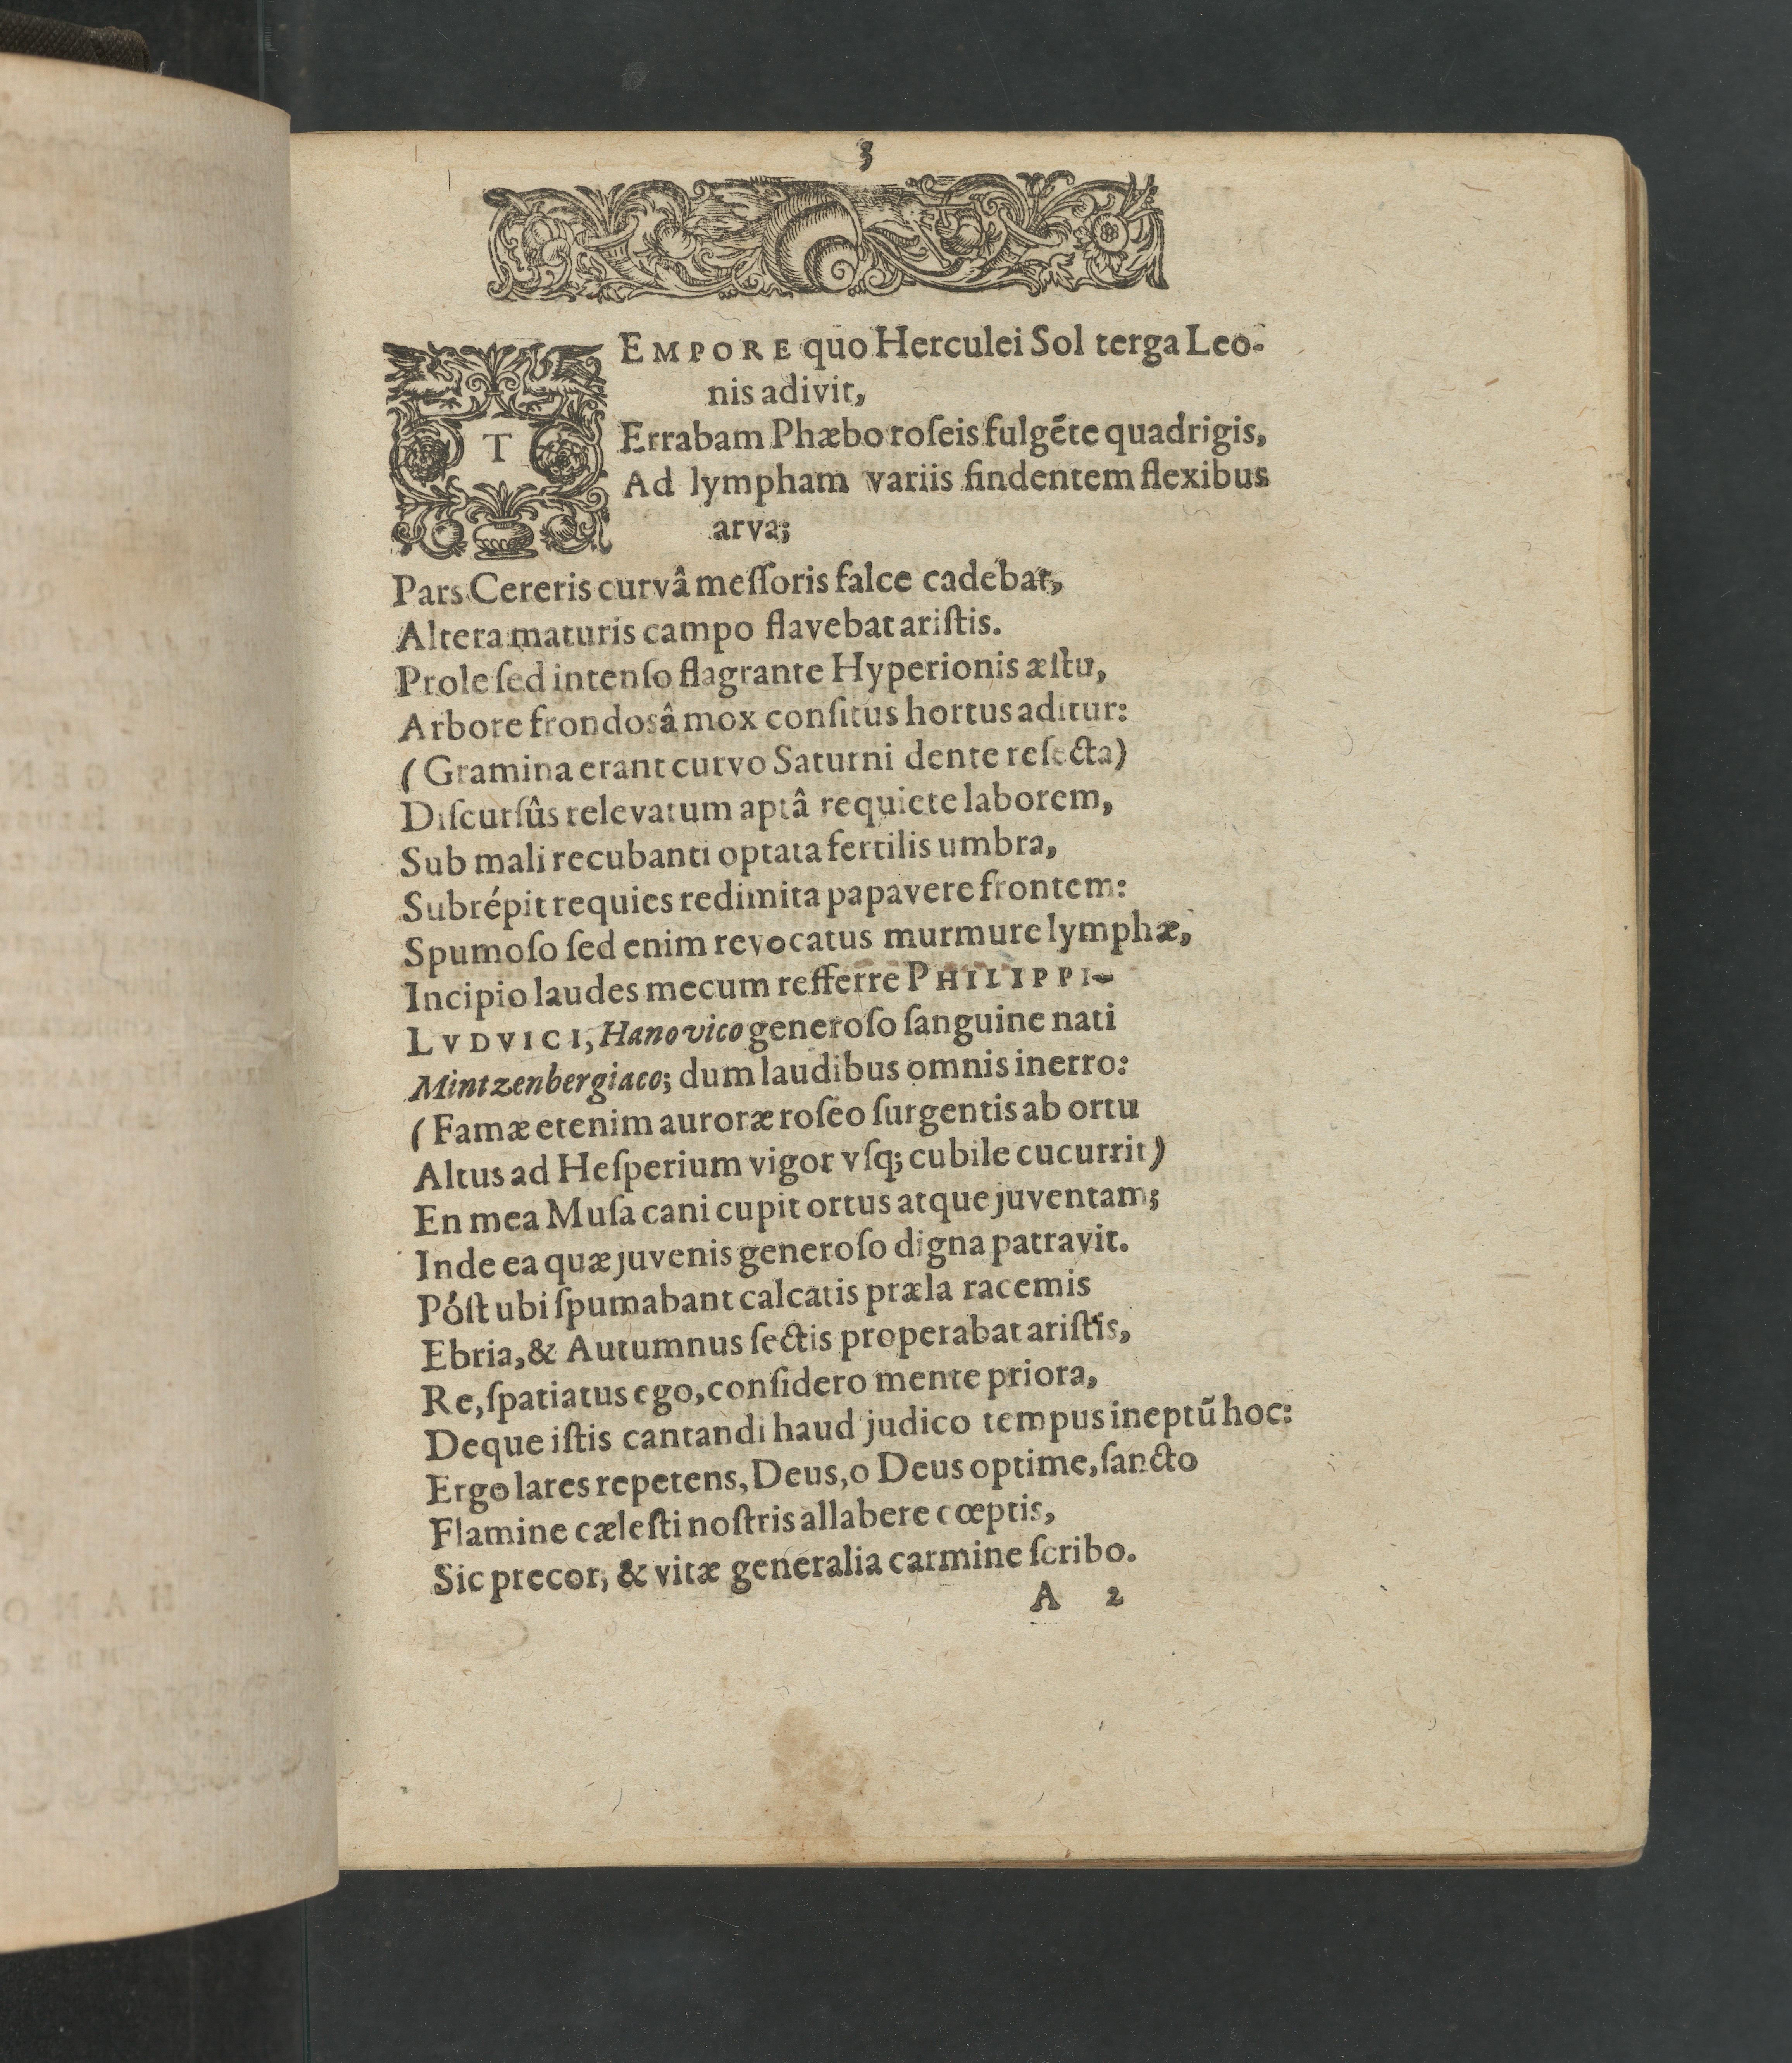 3
TEMPORE quo Herculei Sol terga Leo-
nis adivit,
Errabam Phæbo roſeis fulgẽte quadrigis,
Ad lympham variis findentem flexibus
arva;
Pars Cereris curvâ meſſoris falce cadebat,
Altera maturis campo flavebat ariſtis.
Prole ſed intenſo flagrante Hyperionis æſtu,
Arbore frondosâ mox conſitus hortus aditur:
(Gramina erant curvo Saturni dente reſecta)
Diſcurſûs relevatum aptâ requiete laborem,
Sub mali recubanti optata fertilis umbra,
Subrépit requies redimita papavere frontem:
Spumoſo ſed enim revocatus murmure lymphæ,
Incipio laudes mecum refferre PHILIPPI-
LVDVICI, Hanovico generoſo ſanguine nati
Mintzenbergiaco; dum laudibus omnis inerro:
(Famæ etenim auroræ roſeo ſurgentis ab ortu
Altus ad Heſperium vigor vſq; cubile cucurrit)
En mea Muſa cani cupit ortus atque juventam;
Inde ea quæ juvenis generoſo digna patravit.
Póſt ubi ſpumabant calcatis præla racemis
Ebria, & Autumnus ſectis properabat ariſtis,
Re, ſpatiatus ego, conſidero mente priora,
Deque iſtis cantandi haud judico tempus ineptũ hoc:
Ergo lares repetens, Deus, o Deus optime, ſancto
Flamine cæleſti noſtris allabere cœptis,
Sic precor, & vitæ generalia carmine ſcribo.
A 2